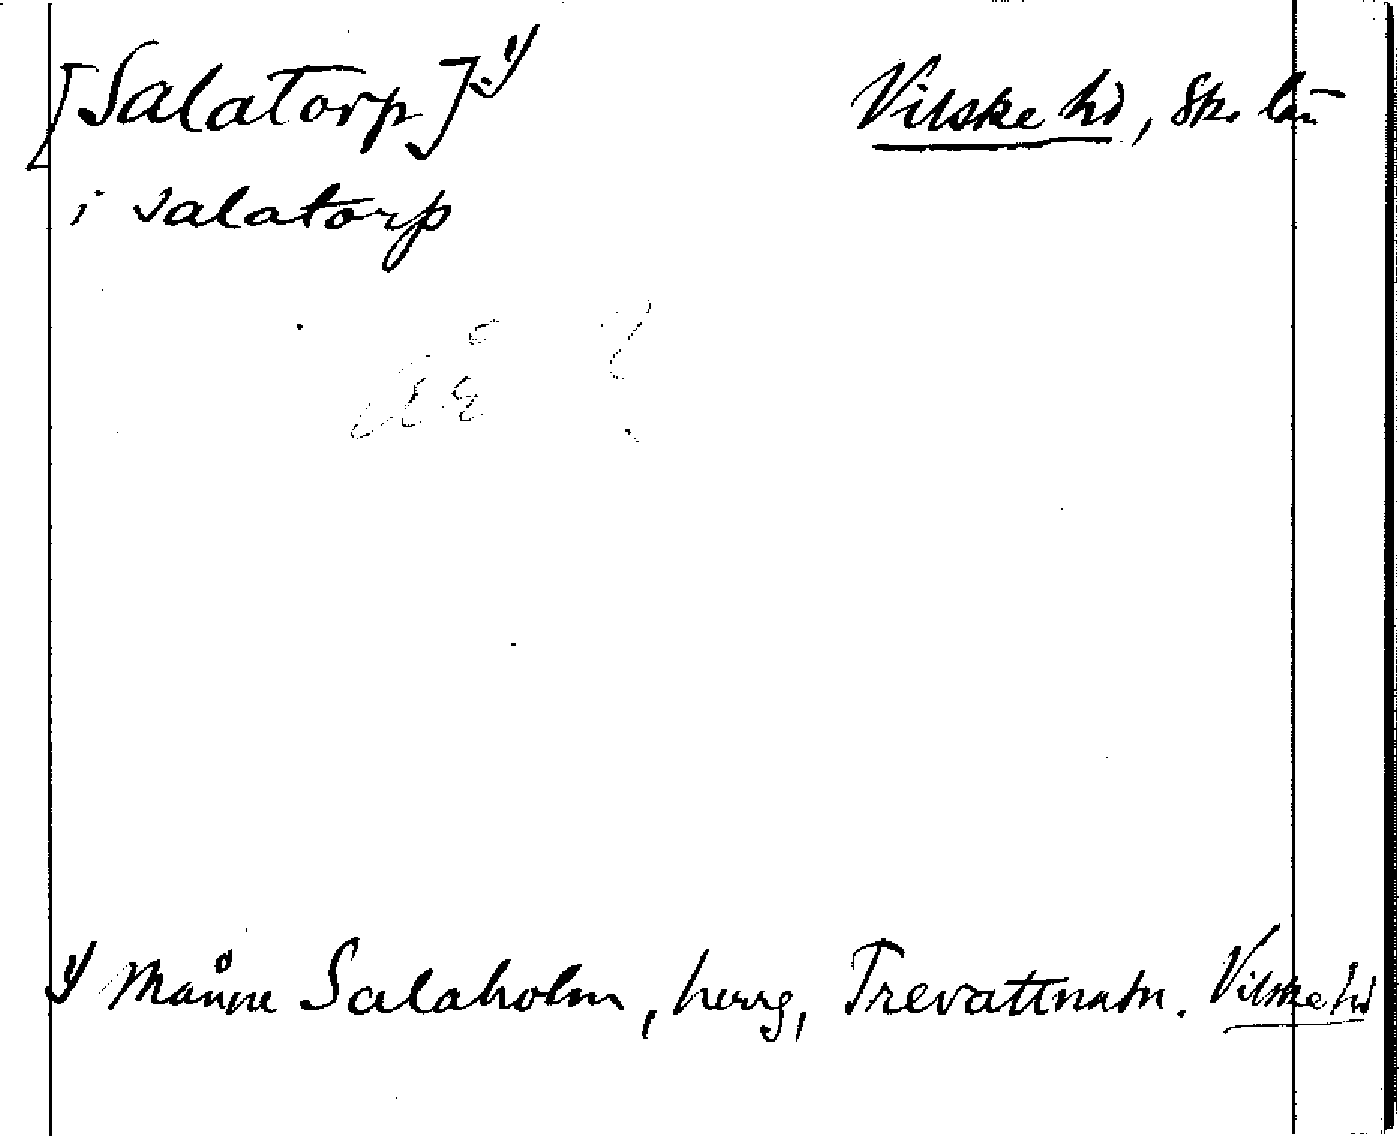 [Salatorp] 1)
Vilske hd, Sk. län
i salatorp
1) Månne Salaholm, herrg, Trevattna sn. Vilske hd